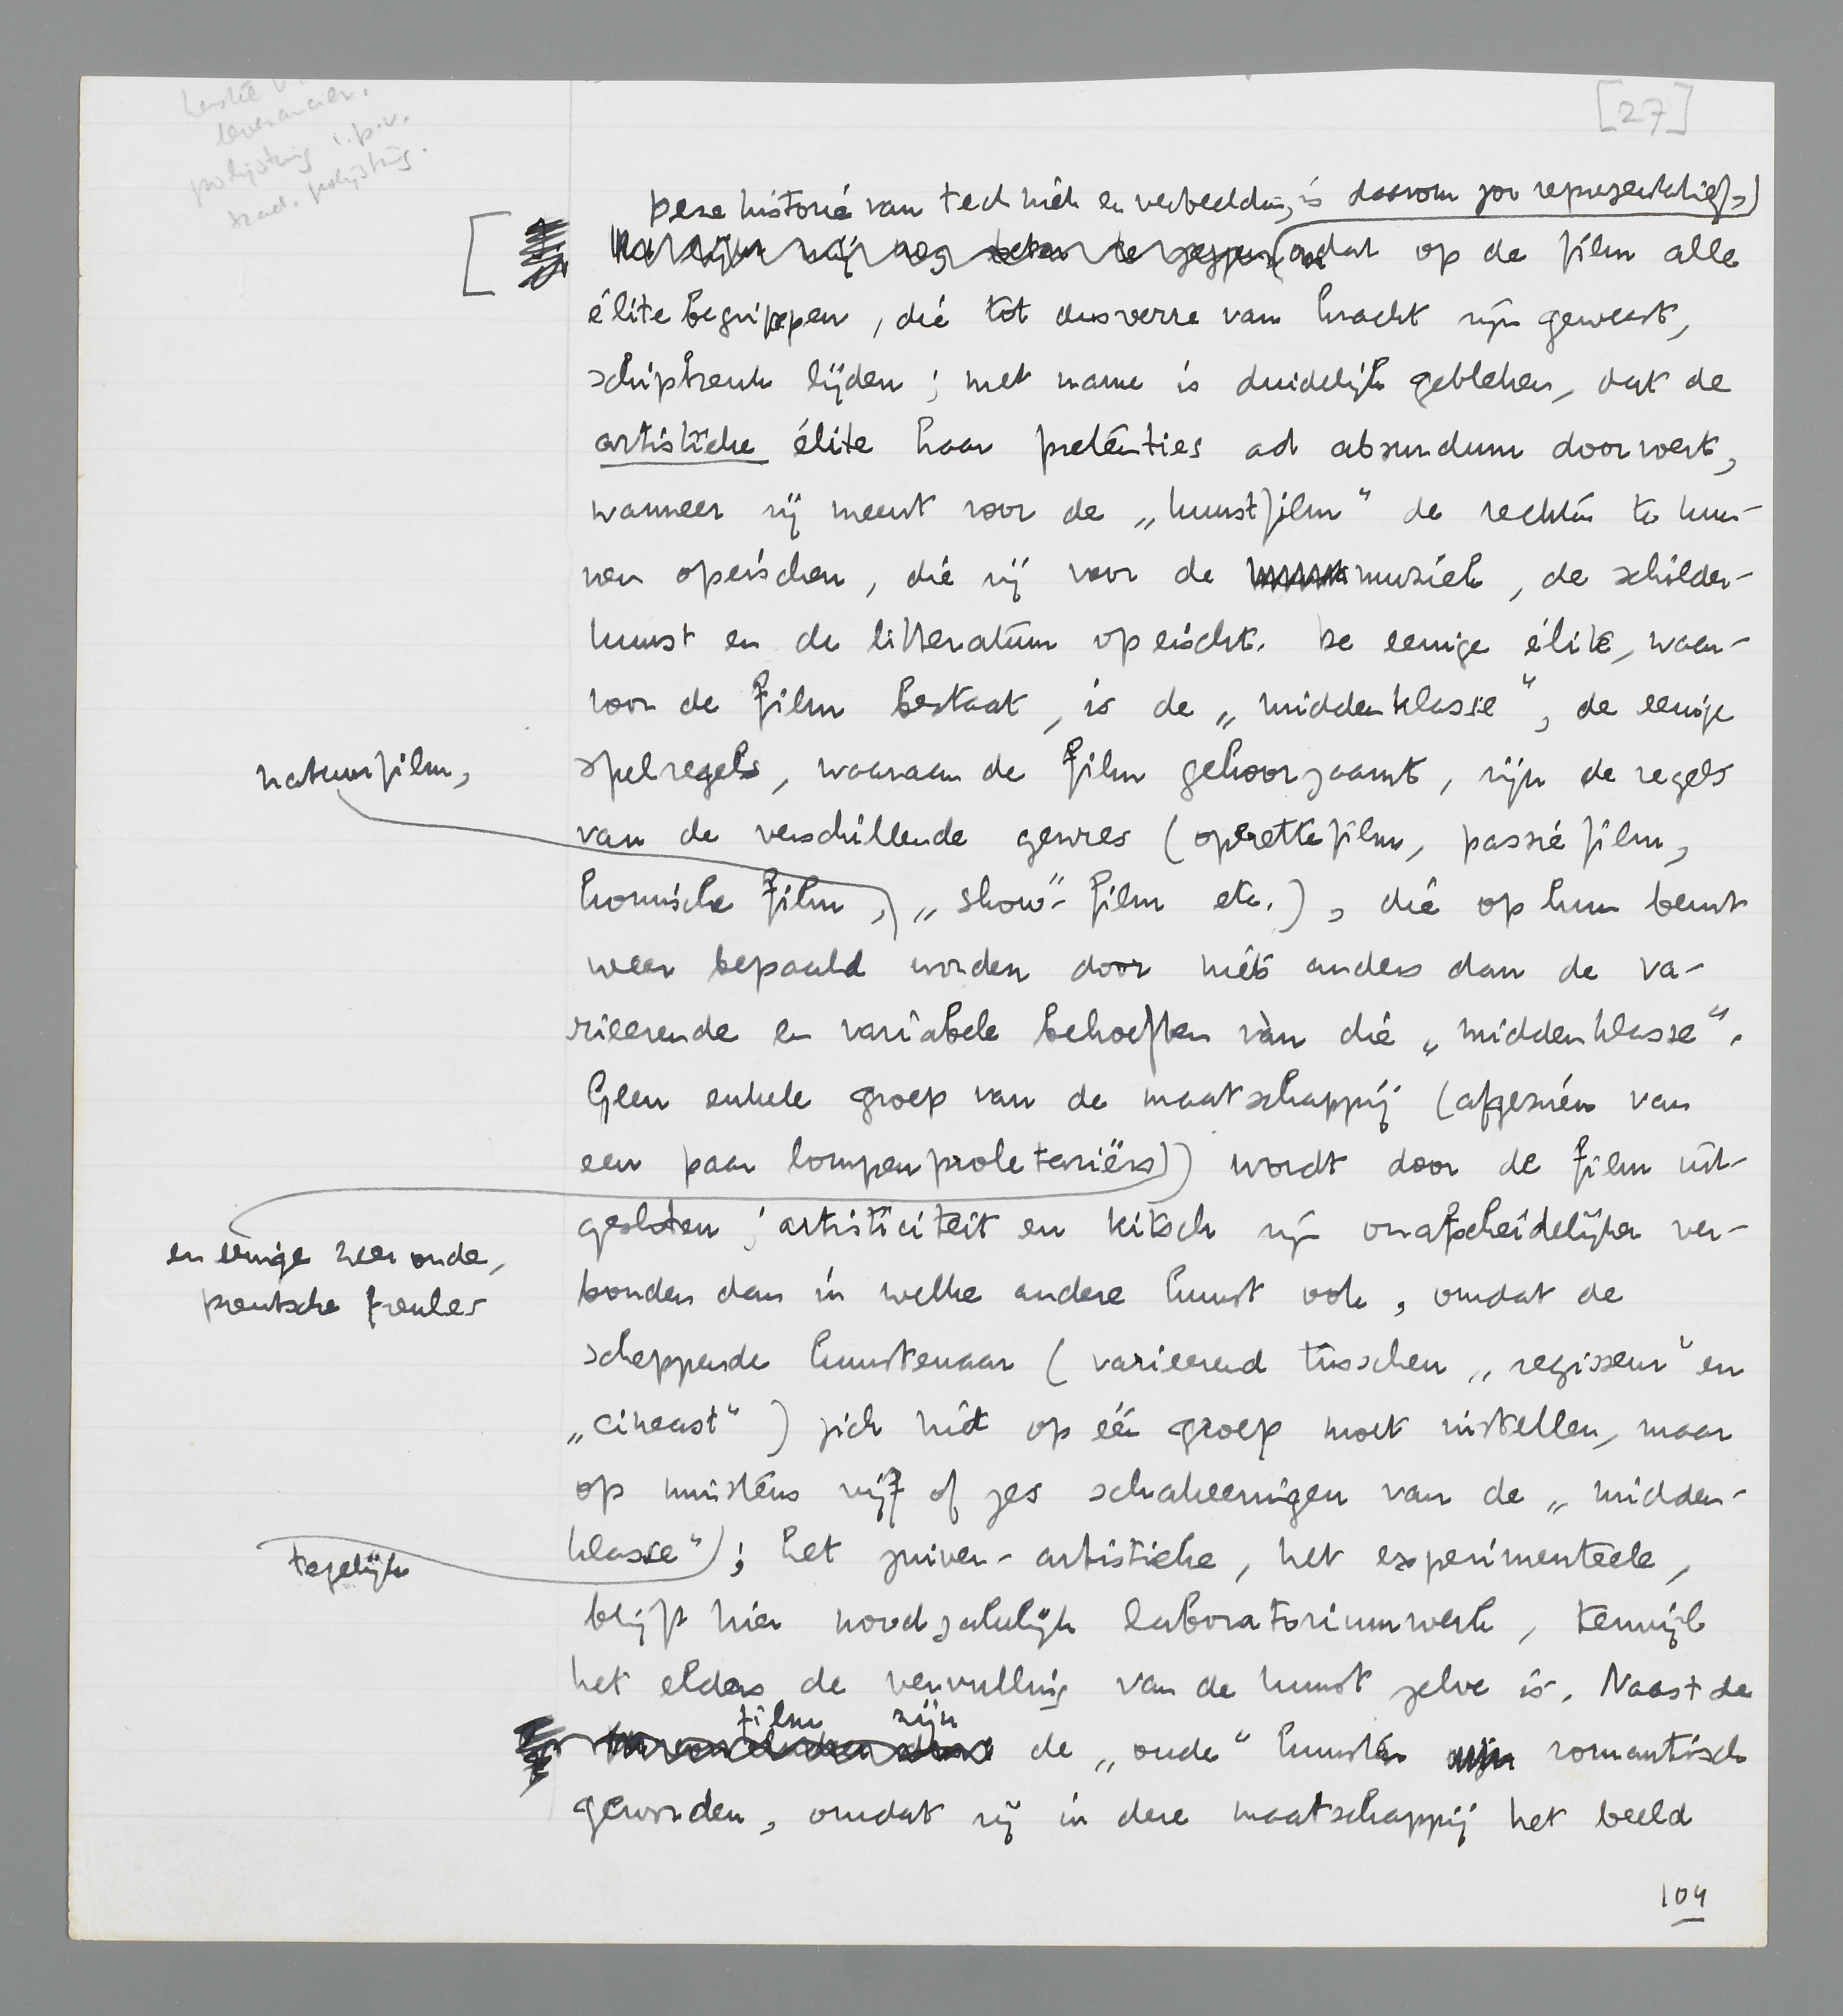 [27]
leverancier.
polijsting i.p.v.
trad. polijsting.
Deze historie van techniek en verbeelding is daarom zoo representatief,
omdat op de film alle
élite begrippen, die tot dusverre van kracht zijn geweest,
schipbreuk lijden; met name is duidelijk gebleken, dat de
artistieke élite haar pretenties ad absurdum doorvoert,
wanneer zij meent voor de „kunstfilm" de rechten te kun-
nen opeischen, die zij voor de muziek, de schilder-
kunst en de litteratuur opeischt. De eenige élite, waar-
voor de film bestaat, is de „middenklasse", de eenige
natuurfilm,
spelregels, waaraan de film gehoorzaamt, zijn de regels
van de verschillende genres (operettefilm, passiefilm,
komische film, „show"-film etc.), die op hun beurt
weer bepaald worden door niets anders dan de va-
rieerende en variabele behoeften vàn die „middenklasse".
Geen enkele groep van de maatschappij (afgezien van
een paar lompenproletariërs) wordt door de film uit-
gesloten; artisticiteit en kitsch zijn onafscheidelijker ver-
en eenige zeer oude,
preutsche freules
bonden dan in welke andere kunst ook, omdat de
scheppende kunstenaar (varieerend tusschen „regisseur" en
„cineast") zich niet op één groep moet instellen, maar
op minstens vijf of zes schakeeringen van de „midden-
klasse"); het zuiver-artistieke, het experimenteele,
tegelijk
blijft hier noodzakelijk laboratoriumwerk, terwijl
het elders de vervulling van de kunst zelve is. Naast de
film zijn
de „oude" kunsten romantisch
geworden, omdat zij in deze maatschappij het beeld
104